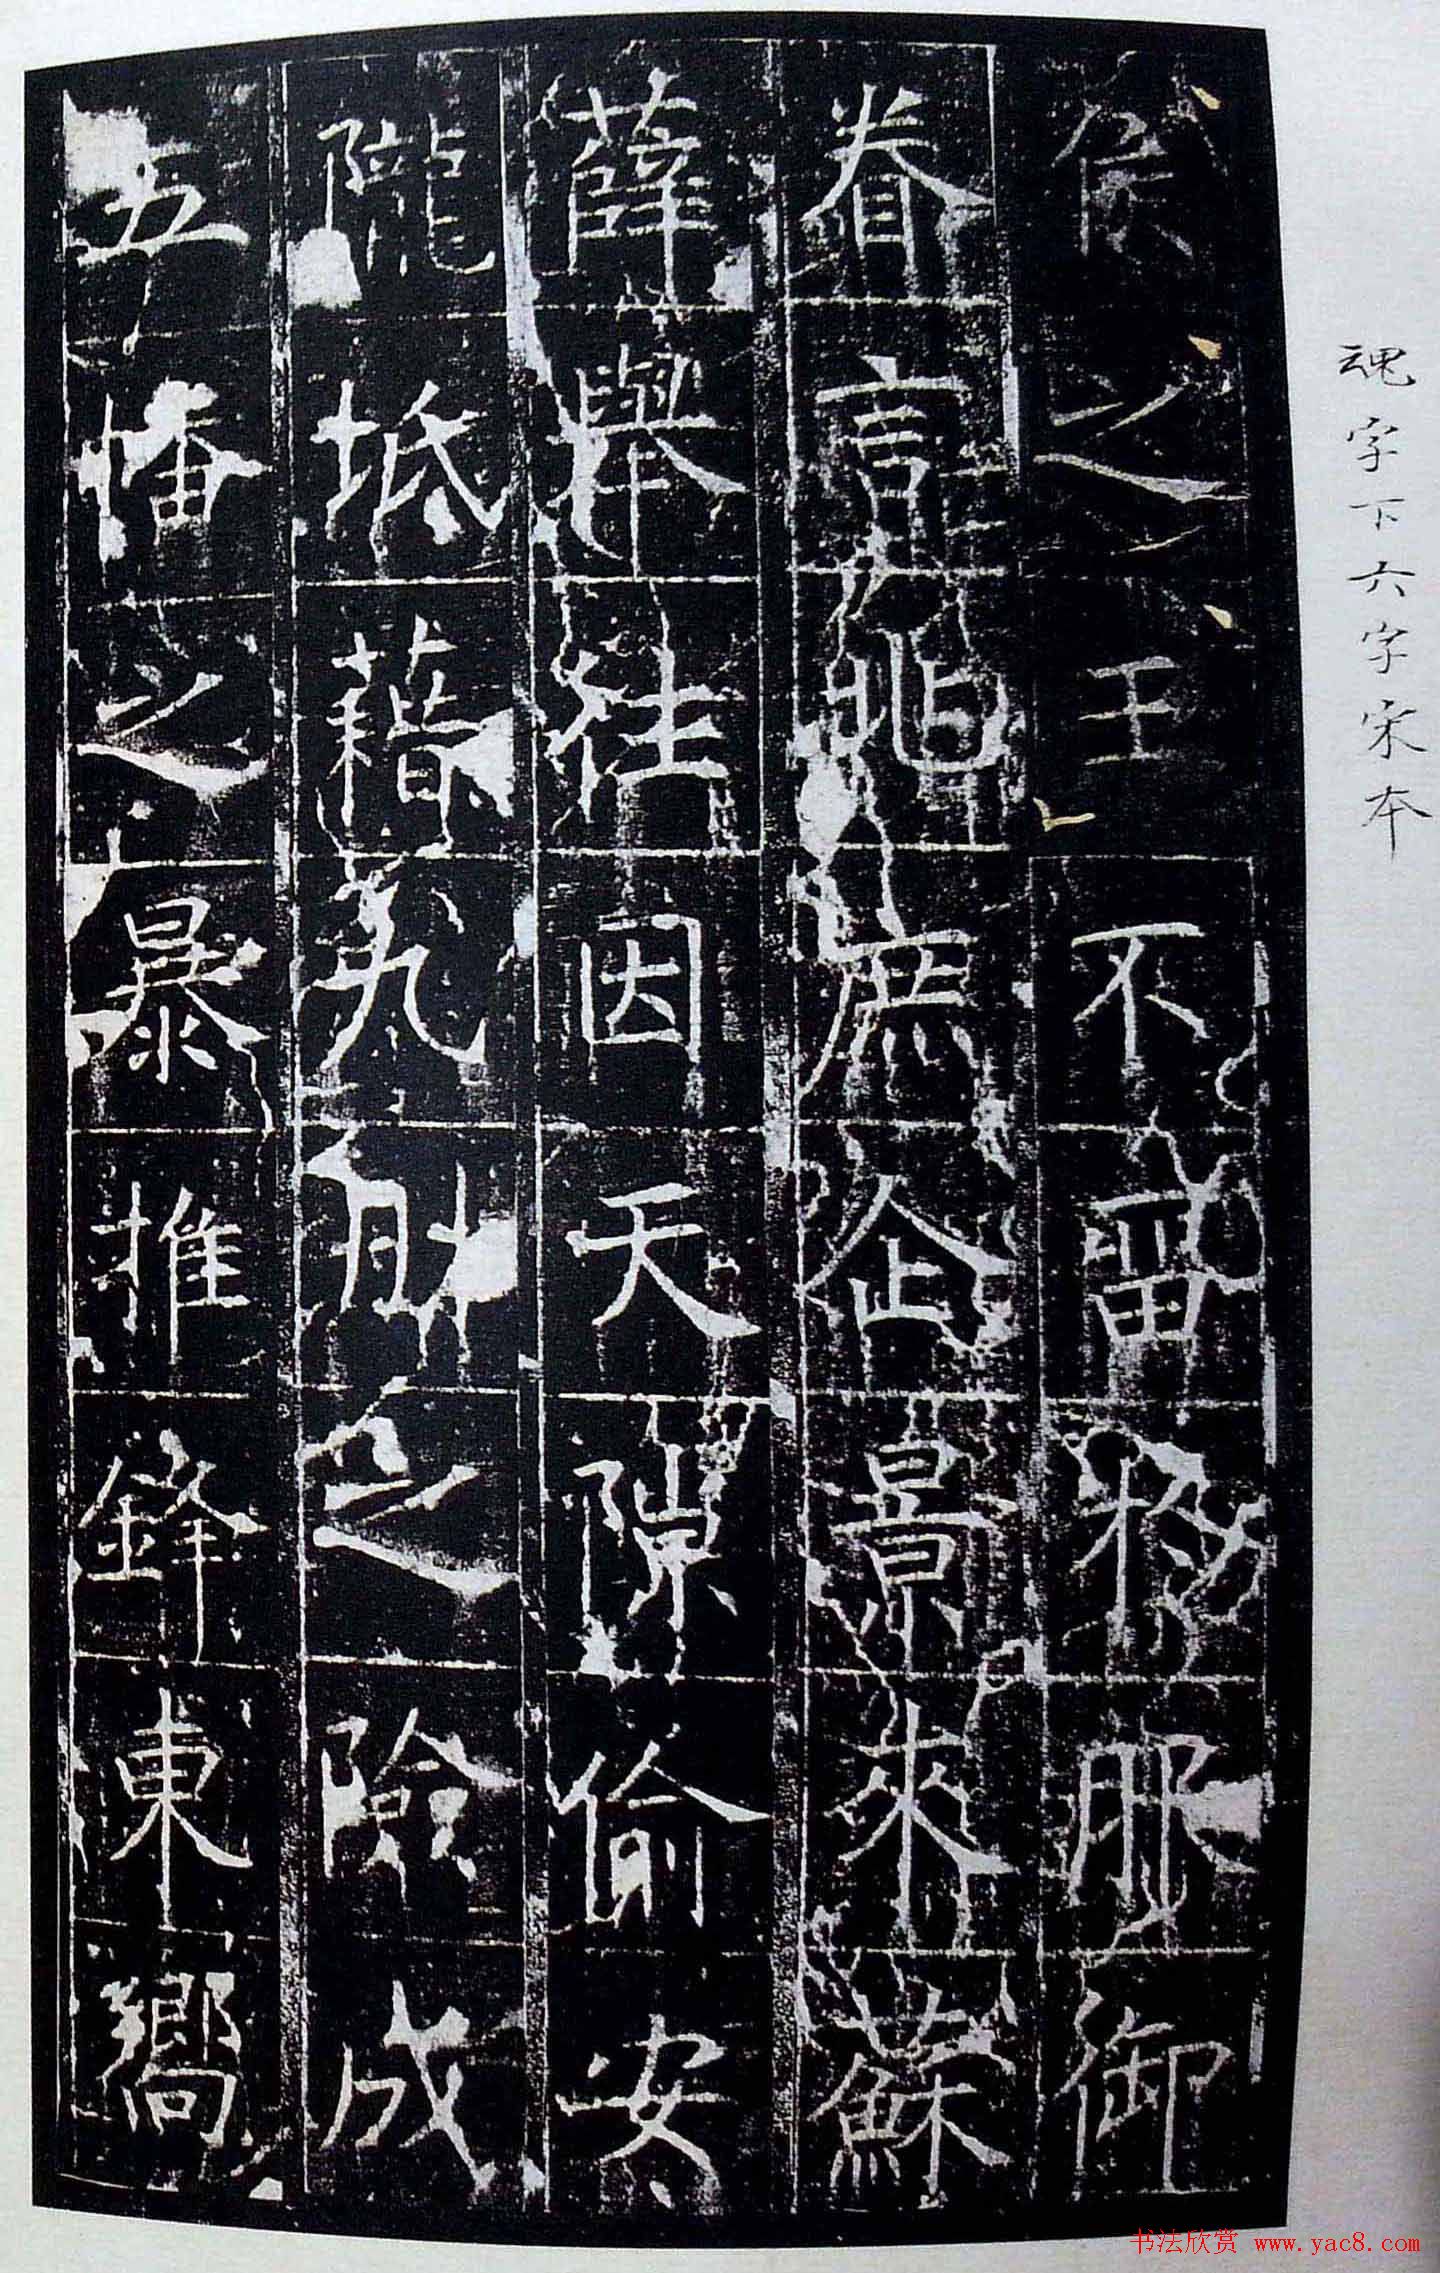 魂字下六字宋本
侯之王不畱服御
眷言庶企景來蘇
薛舉往因天隙偷安
隴坻藉九之險成
五幡之暴推鋒東嚮
书法欣赏 www.yac8.com